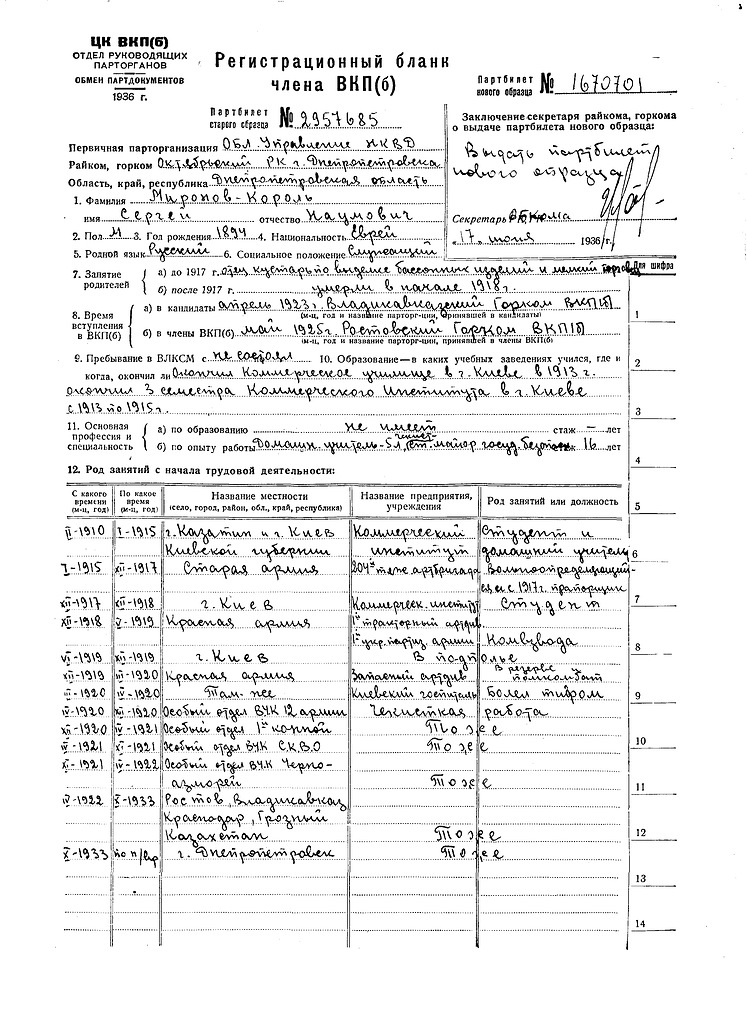 ЦК ВКП(б)
ОТДЕЛ РУКОВОДЯЩИХ
ПАРТОРГАНОВ
ОБМЕН ПАРТДОКУМЕНТОВ
1936 г.
Регистрационный бланк
члена ВКП(б)
Партбилет
нового образца № 1670701
Партбилет
старого образца № 2957685
Заключение секретаря райкома, горкома
о выдаче партбилета нового образца:
Выдать партбилет
нового образца
Секретарь
„17. июня 1936 г.
Первичная парторганизация Обл Управление НКВД
Райком, горком Октябрьский РК г. Днепропетровска
Область, край, республика Днепропетровская область
1. Фамилия Миронов-Король
имя Сергей отчество Наумович
2. Пол М 3. Год рождения 1894 4. Национальность Еврей
5. Родной язык Русский 6. Социальное положение Служащий
7. Занятие родителей
а) до 1917 г. отец кустарь по выделке бассонных изделий и мелкий торговец
б) после 1917 г. умерли в начале 1918 г.
Для шифра
8. Время вступления в ВКП(б)
а) в кандидаты апрель 1923 г. Владикавказский Горком ВКП(б)
(м-ц, год и название парторг-ции, принявшей в кандидаты)
б) в члены ВКП(б) май 1925 г. Ростовский Горком ВКП(б)
(м-ц, год и название парторг-ции, принявшей в члены ВКП(б)
9. Пребывание в ВЛКСМ с не состоял 10. Образование—в каких учебных заведениях учился, где и
когда, окончил ли Окончил Коммерческое училище в г. Киеве в 1913 г.
окончил 3 семестра Коммерческого Института в г. Киеве
с 1913 по 1915 г.
11. Основная профессия и специальность
а) по образованию не имеет стаж — лет
б) по опыту работы Домашн. учитель-5 л, чекист- ст. майор госуд. безопасн 16 лет
12. Род занятий с начала трудовой деятельности:
С какого времени (м-ц, год) По какое время (м-ц, год) Название местности (село, город, район, обл., край, республика) Название предприятия, учреждения Род занятий или должность
II-1910 I-1915 г. Казатин и г. Киев Коммерческий Студент и
Киевской губернии институт домашний учитель
I-1915 XII-1917 Старая армия 204я тяж. артбригада Вольноопределяющий-
ся и с 1917 г. прапорщик
XII-1917 XII-1918 г. Киев Коммерческ. институт Студент
XII-1918 V-1919 Красная армия 1й тракторный артдив
1й укр. партиз. армии Комвзвода
VI-1919 XII-1919 г. Киев В подполье
XII-1919 III-1920 Красная армия Запасный артдив В резерве помкомбат
III-1920 IV-1920 Там-же Киевский госпиталь Болел тифом
IV-1920 XII-1920 Особый отдел ВЧК 12 армии Чекистская работа
XII-1920 IV-1921 Особый отдел 1й конной Тоже
IV-1921 XI-1921 Особый отдел ВЧК С.К.В.О Тоже
XI-1921 IV-1922 Особый отдел ВЧК Черно-
азморей Тоже
IV-1922 X-1933 Ростов, Владикавказ
Краснодар, Грозный
Казахстан Тоже
X-1933 по н/вр г. Днепропетровск Тоже
1
2
3
4
5
6
7
8
9
10
11
12
13
14